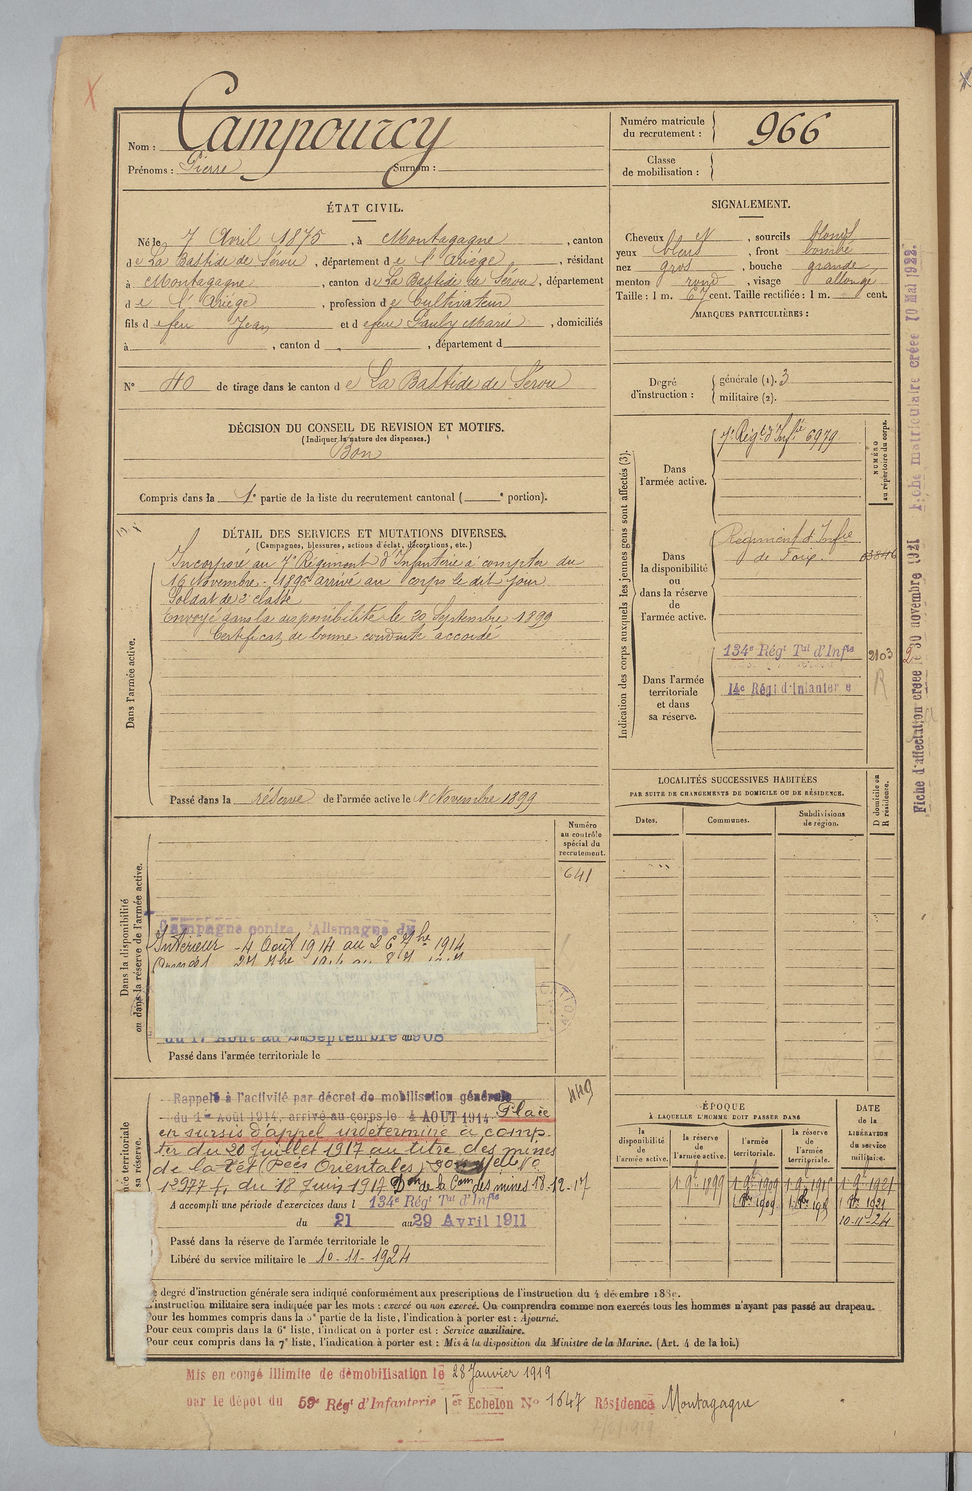 Nom : Campourcy
Prénoms : Pierre Surnom :
Numéro matricule du recrutement : 966
Classe de mobilisation :
ÉTAT CIVIL.
Né le 7 Avril 1875, à Montagagne, canton
de La Bastide de Sérou, département de l'Ariège, résidant
à Montagagne, canton de La Bastide de Sérou, département
de l'Ariège, profession de Cultivateur
fils de feu Jean et de feue Gauby Marie, domiciliés
à , canton d , département d
N° 40 de tirage dans le canton de La Bastide de Sérou
DÉCISION DU CONSEIL DE REVISION ET MOTIFS.
(Indiquer la nature des dispenses.)
Bon
Compris dans la 1e partie de la liste du recrutement cantonal ( e portion).
DÉTAIL DES SERVICES ET MUTATIONS DIVERSES.
(Campagnes, blessures, actions d'éclat, décorations, etc.)
Dans l'armée active.
Incorporé au 7e Régiment d'Infanterie à compter du
16 Novembre 1896 arrivé au corps le dit jour
Soldat de 2e classe
Envoyé dans la disponibilité le 20 Septembre 1899
Certificat de bonne conduite accordé
Passé dans la réserve de l'armée active le 1 Novembre 1899
Numéro au contrôle spécial du recrutement.
641
Dans la disponibilité ou dans la réserve de l'armée active.
Campagne contre l'Allemagne du
Intérieur - 4 Août 1914 au 26 7bre 1914
du 17 Août au Septembre 1908
Passé dans l'armée territoriale le
449
Rappelé à l'activité par décret de mobilisation générale
du 1er Août 1914, arrivé au corps le 4 AOUT 1914. Placé
en sursis d'appel indéterminé à comp-
ter du 20 Juillet 1917 au titre des mines
de la Têt (Pées Orientales)
12977 du 18 Juin 1917 Don de la Com des mines 18-12-17
A accompli une période d'exercices dans l 134e Régt Tal d'Infie
du 21 au 29 Avril 1911
Passé dans la réserve de l'armée territoriale le
Libéré du service militaire le 10-11-1924
SIGNALEMENT.
Cheveux , sourcils blonds
yeux bleus, front bombé
nez gros, bouche grande
menton rond, visage allongé
Taille : 1 m. 67 cent. Taille rectifiée : 1 m. cent.
MARQUES PARTICULIÈRES :
Degré d'instruction : générale (1). 3
militaire (2).
Indication des corps auxquels les jeunes gens sont affectés (3).
NUMÉRO au répertoire du corps.
Dans l'armée active.
7e Régt d'Infie 6979
Dans la disponibilité ou dans la réserve de l'armée active.
Régiment d'Infie
de Foix.
Dans l'armée territoriale et dans sa réserve.
134e Régt Tal d'Infie 2103
14e Régt d'Infanterie R
LOCALITÉS SUCCESSIVES HABITÉES
PAR SUITE DE CHANGEMENTS DE DOMICILE OU DE RÉSIDENCE.
Dates. Communes. Subdivisions de région. D domicile ou R résidence.
ÉPOQUE
À LAQUELLE L'HOMME DOIT PASSER DANS
DATE DE LA LIBÉRATION du service militaire.
la disponibilité de l'armée active. la réserve de l'armée active. l'armée territoriale. la réserve de l'armée territoriale.
10-11-24
Fiche d'affectation créée le 30 novembre 1921
Fiche matriculaire créée 10 Mai 1922.
Le degré d'instruction générale sera indiqué conformément aux prescriptions de l'instruction du 4 décembre 188
L'instruction militaire sera indiquée par les mots : exercé ou non exercé. On comprendra comme non exercés tous les hommes n'ayant pas passé au drapeau.
Pour les hommes compris dans la 5e partie de la liste, l'indication à porter est : Ajourné.
Pour ceux compris dans la 6e liste, l'indication à porter est : Service auxiliaire.
Pour ceux compris dans la 7e liste, l'indication à porter est : Mis à la disposition du Ministre de la Marine. (Art. 4 de la loi.)
Mis en congé illimité de démobilisation le 28 Janvier 1919
par le dépôt du 59e Régt d'Infanterie 1er Echelon No 1647 Résidence Montagagne